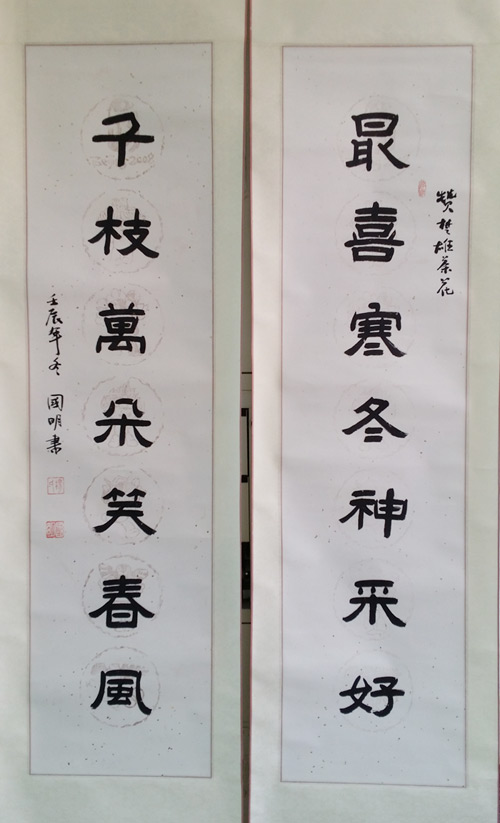 贊楚雄茶花
最喜寒冬神采好
千枝萬朵笑春風
壬辰年冬 國明書